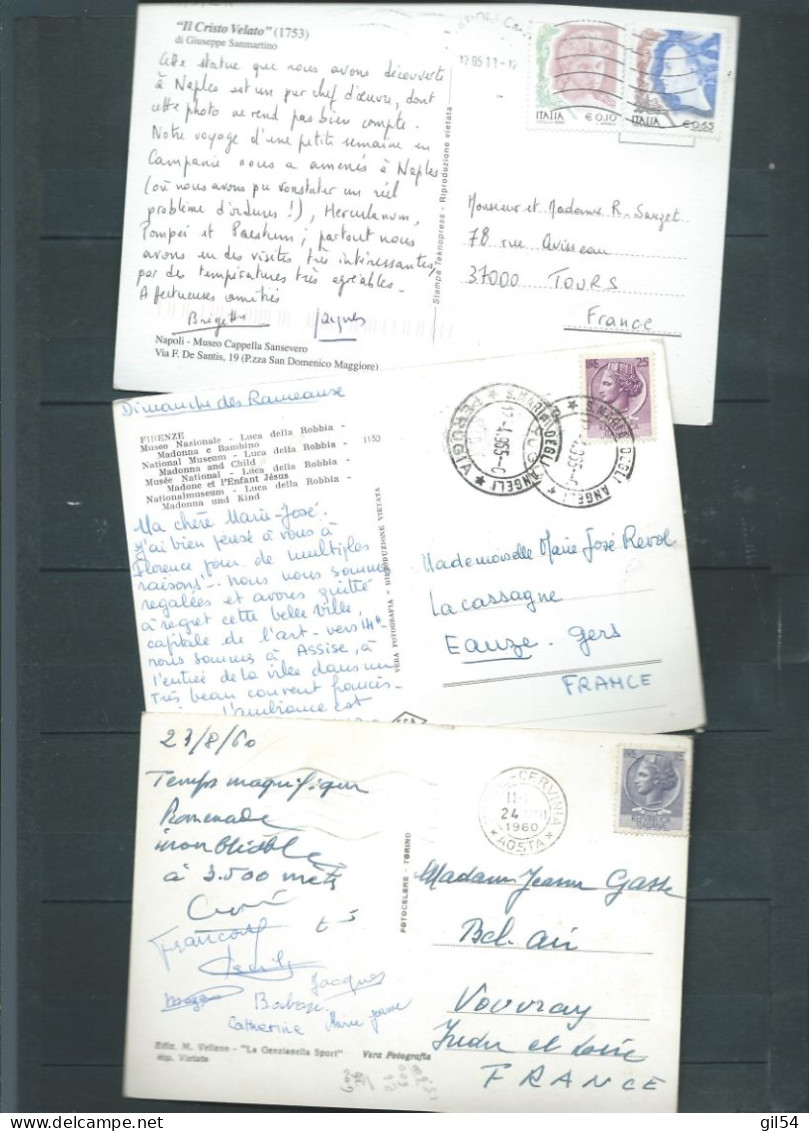 "Il Cristo Velato" (1753)
di Giuseppe Sanmartino
Cette statue que nous avons découverte
à Naples est un pur chef d'œuvre, dont
cette photo ne rend pas bien compte.
Notre voyage d'une petite semaine en
Campanie nous a amenés à Naples
(où nous avons pu constater un réel
problème d'ordures !), Herculanum,
Pompei et Paestum ; partout nous
avons eu des visites très intéressantes,
par des températures très agréables.
Affectueuses amitiés
Brigitte Jacques
Napoli - Museo Cappella Sansevero
Via F. De Santis, 19 (P.zza San Domenico Maggiore)
Stampa Teknopress - Riproduzione vietata
ITALIA €0,10
ITALIA €0,65
Monsieur et Madame R. Sanzet
78 rue Avisseau
37000 TOURS
France
Dimanche des Rameaux
FIRENZE
Museo Nazionale - Luca della Robbia -
Madonna e Bambino
National Museum - Luca della Robbia -
Madonna and Child
Musée National - Luca della Robbia -
Madone et l'Enfant Jésus
Nationalmuseum - Luca della Robbia -
Madonna und Kind
1150
Ma chère Marie-José.
J'ai bien pensé à vous à
Florence pour de multiples
raisons! - nous nous sommes
regalées et avons quitté
à regret cette belle ville,
capitale de l'art - vers 14h
nous sommes à Assise, à
l'entrée de la ville dans un
très beau couvent francis-
l'ambiance est
VERA FOTOGRAFIA - RIPRODUZIONE VIETATA
S. MARIA DEGLI ANGELI
PERUGIA
25
Mademoiselle Marie José Revol
Lacassagne
Eauze - Gers
FRANCE
23/8/60
Temps magnifique
Promenade
inoubliable
à 3.500 mets
Jacques
Catherine Marie Jeanne
Ediz. M. Vellano - "La Genzianella Sport"
Rip. Vietata
Vera Fotografia
FOTOCELERE - TORINO
CERVINIA
24
1960
AOSTA
Madame Jeanne Gasse
Bel air
Vouvray
Indre et Loire
FRANCE
delcampe.net
gil54